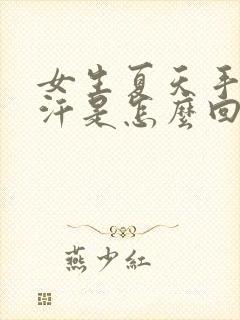 女生夏天手
汗是怎麼回
燕少紅